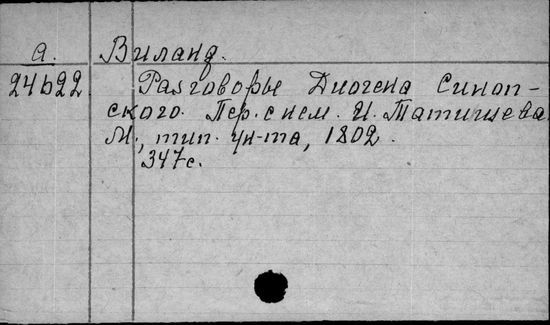 а. Виланд.
24622 Разговоры Диогена Синоп-
ского. Пер. с нем. И. Татищева
М., тип. ун-та, 1802.
347 с.